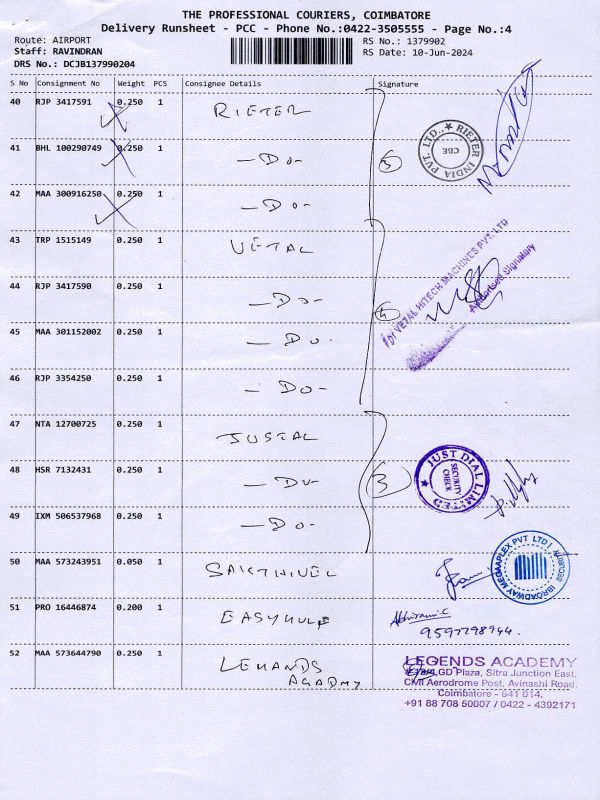 THE PROFESSIONAL COURIERS, COIMBATORE
Delivery Runsheet - PCC - Phone No.:0422-3505555 - Page No.:4
Route: AIRPORT
RS No.: 1379902
Staff: RAVINDRAN
RS Date: 10-Jun-2024
DRS No.: DCJB137990204
S No Consignment No Weight PCS Consignee Details Signature
40 RJP 3417591 0.250 1 RIETER
41 BHL 100290749 0.250 1 -DO-
42 MAA 300916250 0.250 1 -DO-
RIETER INDIA PVT. LTD.
CBE
43 TRP 1515149 0.250 1 VETAL
44 RJP 3417590 0.250 1 -DO-
45 MAA 301152002 0.250 1 -DO-
46 RJP 3354250 0.250 1 -DO-
4
For VETAL HITECH MACHINES PVT. LTD
Authorised Signatory
47 NTA 12700725 0.250 1 JUSTAL
48 HSR 7132431 0.250 1 -DO-
49 IXM 506537968 0.250 1 -DO-
3
JUST DIAL LIMITED
SECURITY CHECK
50 MAA 573243951 0.050 1 SAKTHIVEL
BROADWAY MEGAAPLEX PVT LTD
SECURITY
51 PRO 16446874 0.200 1
9597798944.
52 MAA 573644790 0.250 1
LEGENDS ACADEMY
GD Plaza, Sitra Junction East,
Civil Aerodrome Post, Avinashi Road,
Coimbatore - 641 014.
+91 88 708 50007 / 0422 - 4392171